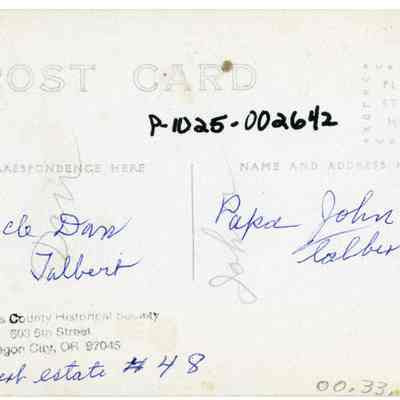 POST CARD
P-1D25-002642
RRESPONDENCE HERE
NAME AND ADDRESS H
cle Dan
Talbert
Papa John
Talber
John
s County Historical Society
603 6th Street
egon City, OR 97045
estate # 48
00.33.